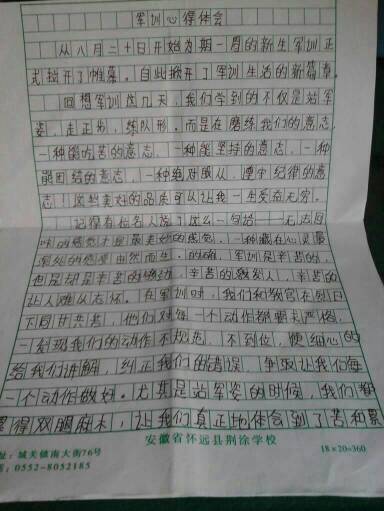 军训心得体会
从八月二十日开始为期一周的新生军训正
式揭开了帷幕。自此掀开了军训生活的新篇章。
回想军训这几天，我们学到的不仅是站军
姿，走正步，练队形。而是在磨练我们的意志，
一种能吃苦的意志，一种能坚持的意志，一种
能团结的意志，一种绝对服从，遵守纪律的意
志！这些美好的品质可以让我一生受益无穷。
记得有位名人说了这么一句话——无法回
味的感觉才是最美妙的感觉，一种藏在心灵最
深处的感受由然而生。的确，军训是辛苦的，
但是却是辛苦的 辛苦的 人，辛苦的
让人难以忘怀。在军训时，我们和教官在烈日
下同甘共苦，他们对每一个动作都要求严格，
一发现我们的动作不规范，不到位，便细心的
给我们讲解，纠正我们的错误，争取让我们每
一个动作做好。尤其是站军姿的时候，我们都
累得双腿麻木，让我们真正地体会到了苦和累
安徽省怀远县荆涂学校
18×20=360
址：城关镇南大街76号
：0552-8052185